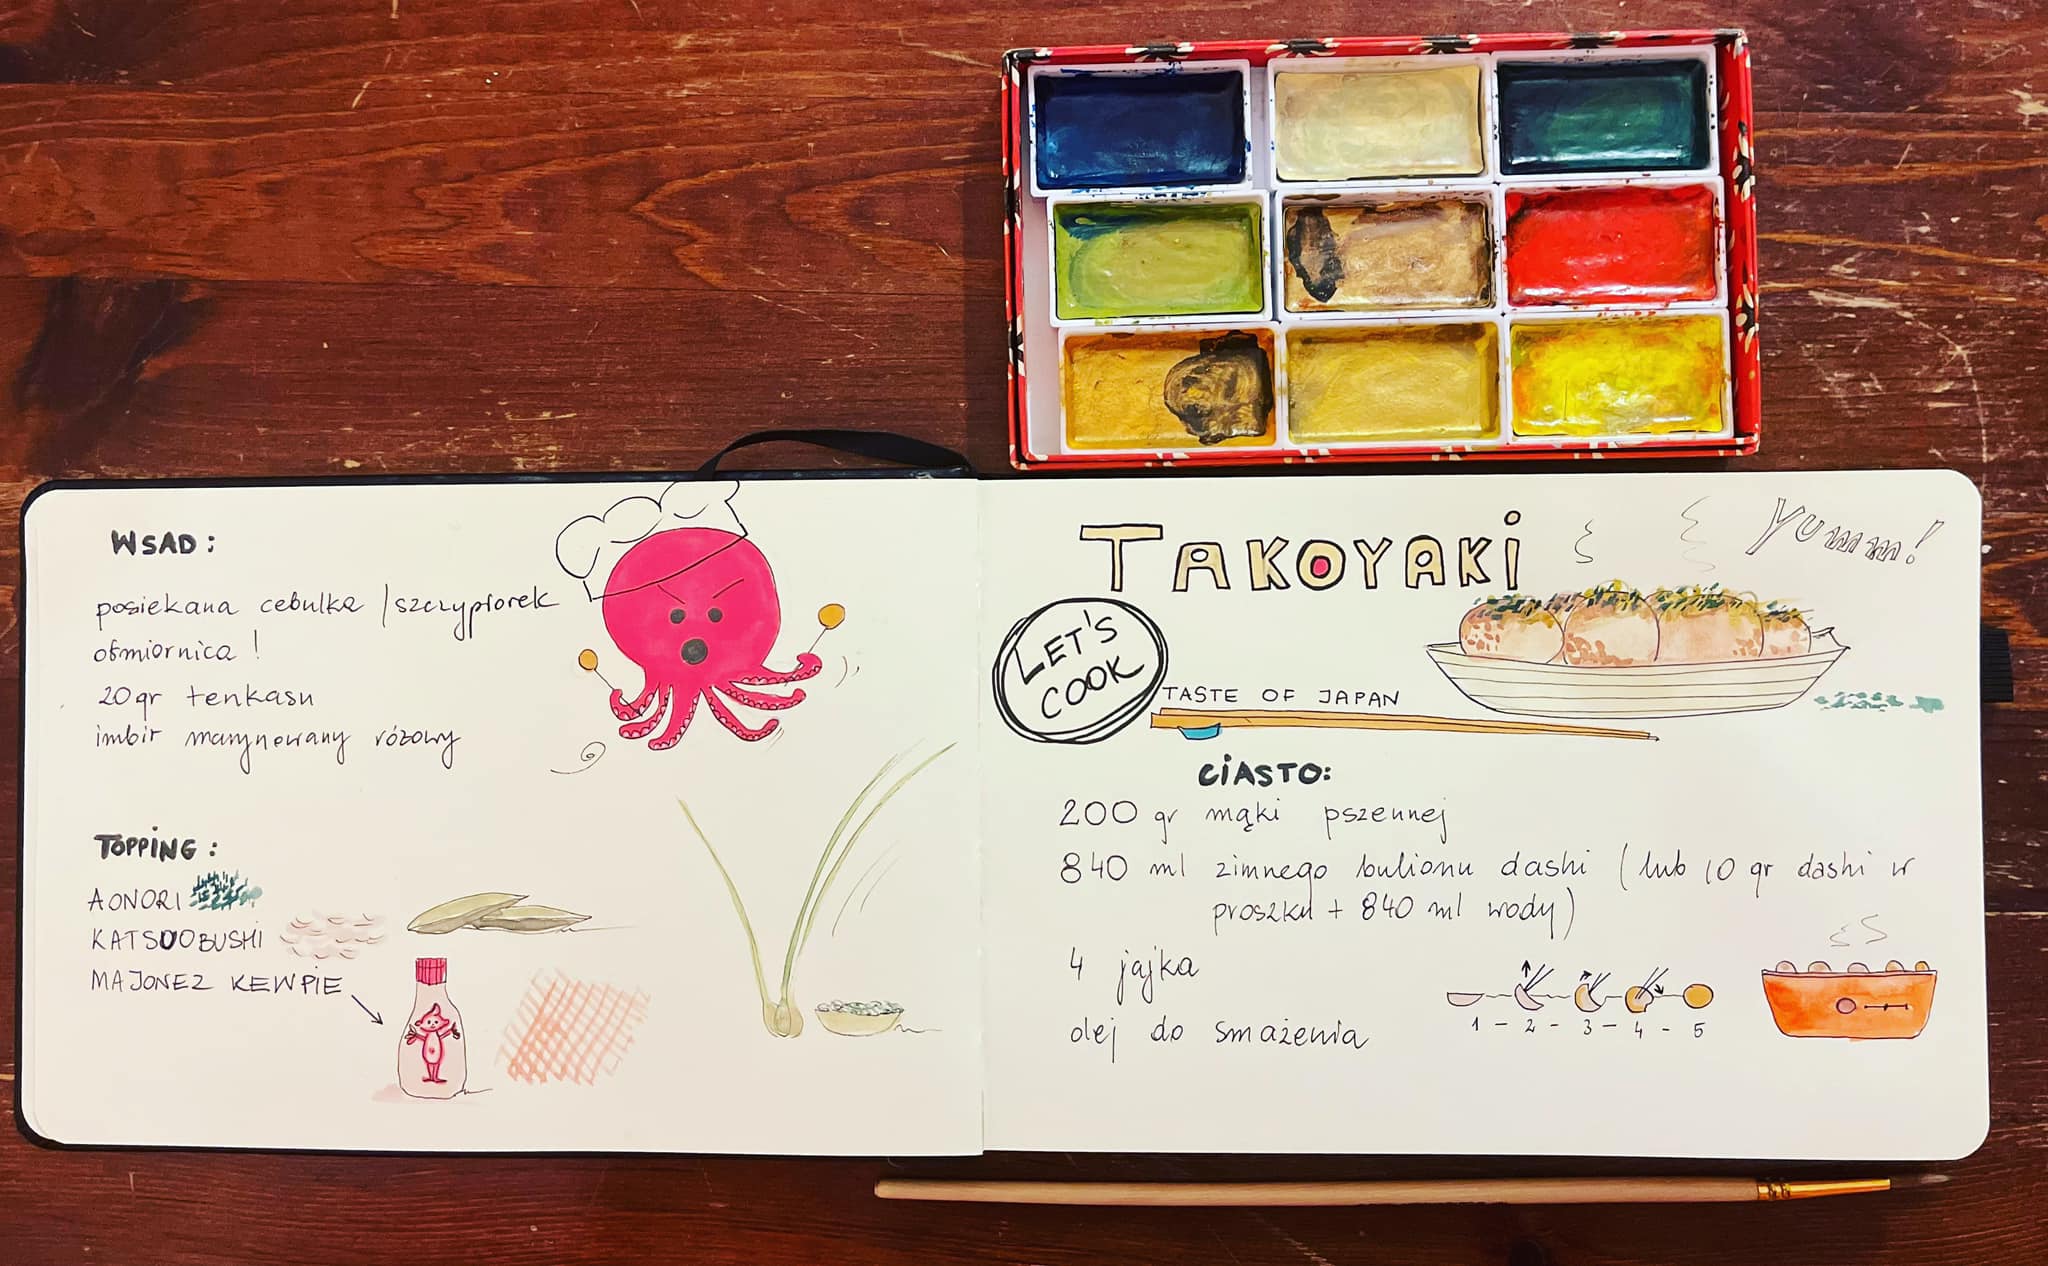 WSAD:
posiekana cebulka / szczypiorek
ośmiornica!
20 gr tenkasu
imbir marynowany różowy
TOPPING:
AONORI
KATSUOBUSHI
MAJONEZ KEWPIE
TAKOYAKI
Yumm!
LET'S
COOK
TASTE OF JAPAN
CIASTO:
200 gr mąki pszennej
840 ml zimnego bulionu dashi (lub 10 gr dashi w
proszku + 840 ml wody)
4 jajka
olej do smażenia
1 - 2 - 3 - 4 - 5